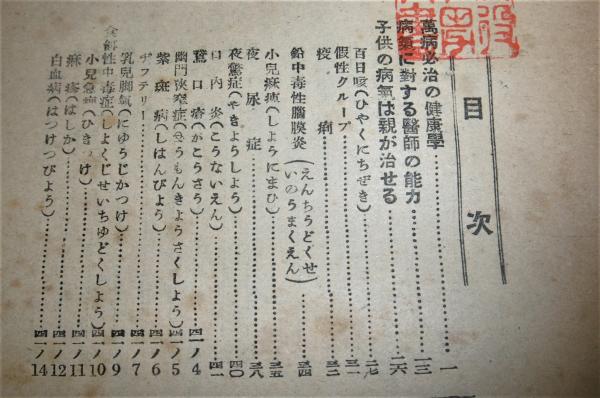 目次
萬病必治の健康學……一
病氣に對する醫師の能力……一三
子供の病氣は親が治せる……二六
百日咳(ひやくにちぜき)……二七
假性クループ……三一
疫痢……三二
鉛中毒性腦膜炎(えんちうどくせいのうまくえん)……三四
小兒痲痺(しように まひ)……三五
夜尿症……三八
夜驚症(やきようしよう)……四〇
口内炎(こうないえん)……四一
鵞口瘡(がこうさう)……四一ノ4
幽門狹窄症(ゆうもんきようさくしよう)……四一ノ5
紫斑病(しはんびよう)……四一ノ6
ヂフテリー……四一ノ7
乳兒脚氣(にゆうじかつけ)……四一ノ9
食餌性中毒症(しよくじせいちゆどくしよう)……四一ノ10
小兒急癇(ひきつけ)……四一ノ11
痲疹(はしか)……四一ノ12
白血病(はつけつびよう)……四一ノ14